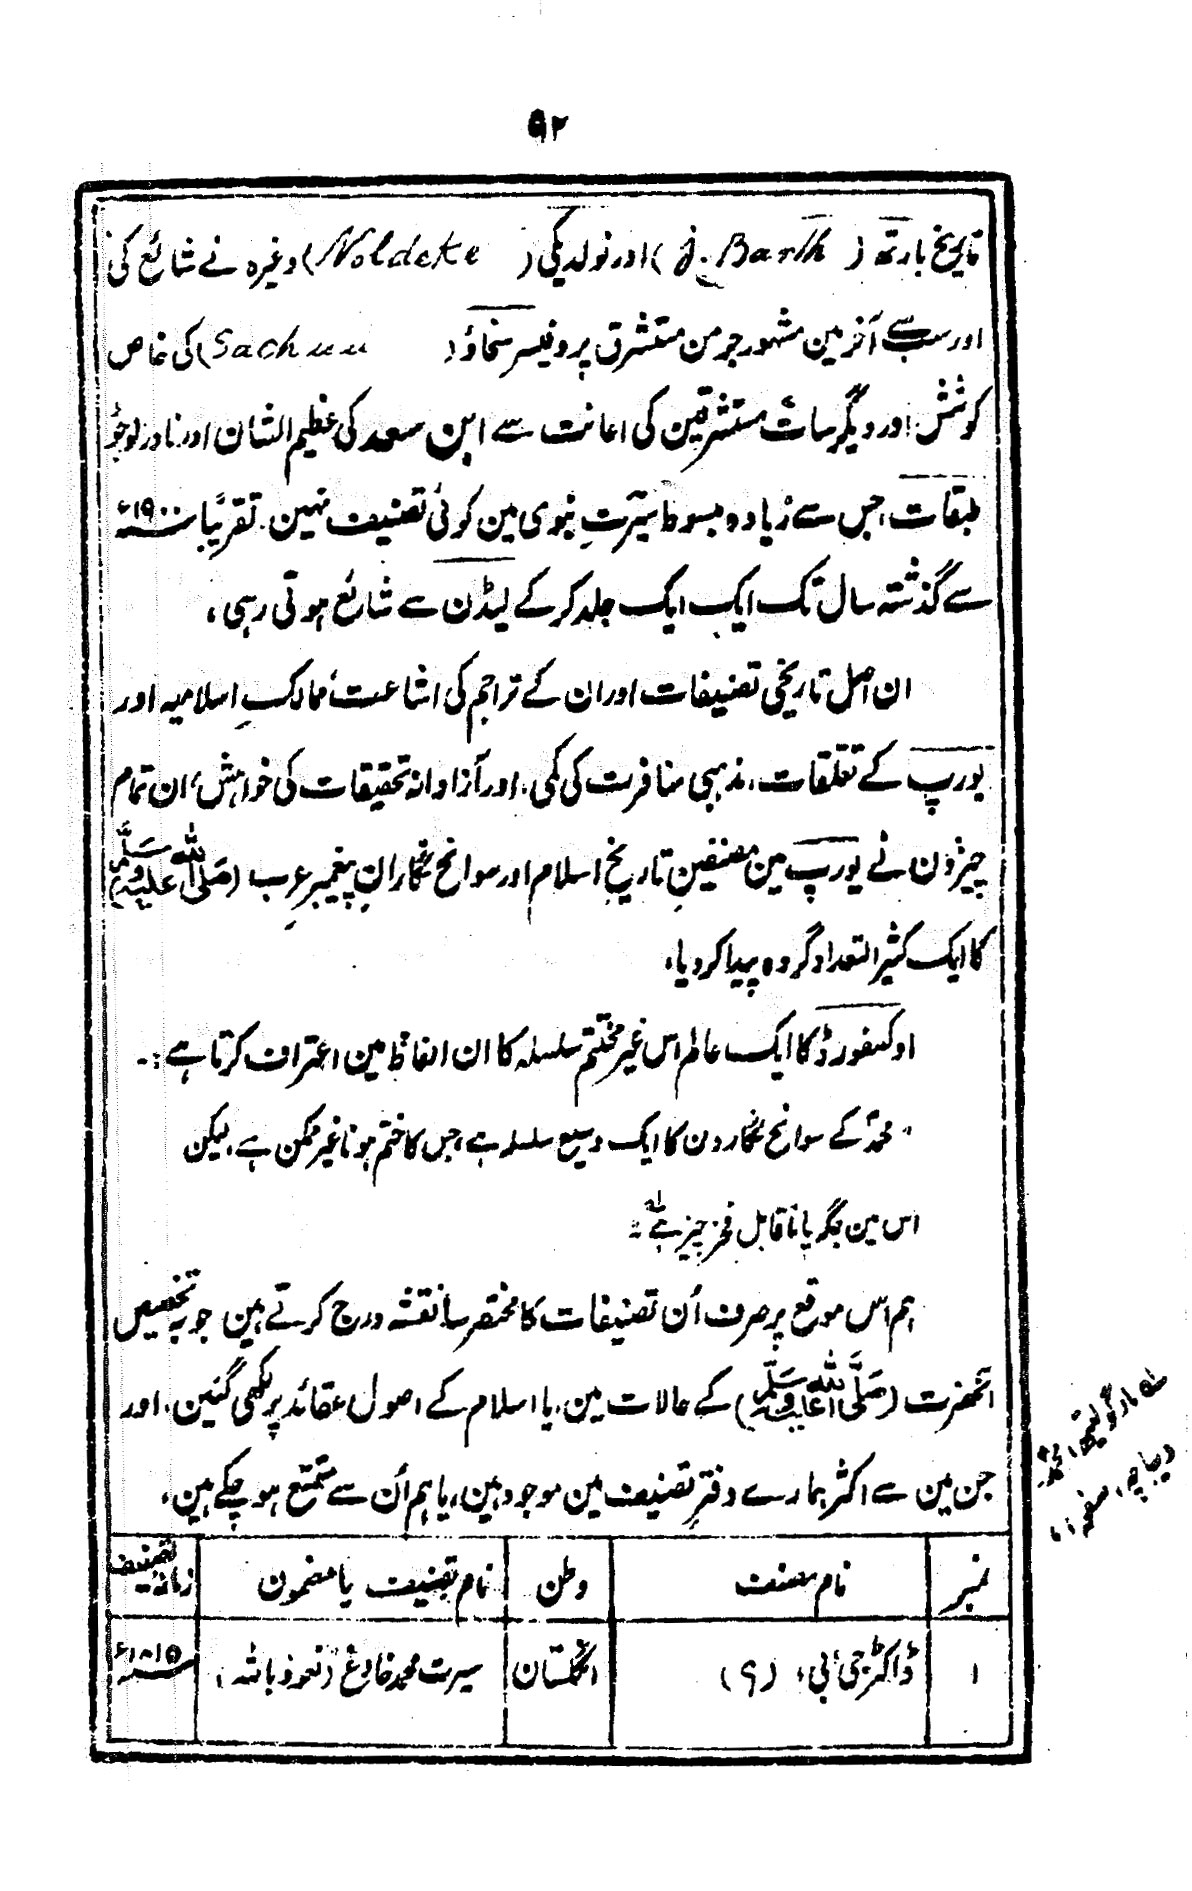 ۹۲
تاریخ بارتھ (J. Barth) اور نولدیکی (Noldeke) وغیرہ نے شائع کی
اور سب سے آخر مین مشہور جرمن مستشرق پروفیسر سخاؤ (Sachuu) کی خاص
کوشش اور دیگر سات مستشرقین کی اعانت سے ابن سعد کی عظیم الشان اور نادر لوجود
طبقات، جس سے زیادہ مبسوط سیرتِ نبوی مین کوئی تصنیف نہین۔ تقریبًا سنہ ۱۹۰۰ء
سے گذشتہ سال تک ایک ایک جلد کر کے لیڈن سے شائع ہوتی رہی،
ان اصل تاریخی تصنیفات اور ان کے تراجم کی اشاعت، ممالکِ اسلامیہ اور
یورپ کے تعلقات، مذہبی منافرت کی کمی، اور آزادانہ تحقیقات کی خواہش، ان تمام
چیزون نے یورپ مین مصنفینِ تاریخِ اسلام اور سوانح نگارانِ پیغمبرِ عرب (صَلَّی اللہ عَلَیْہِ وَسَلَّمَ)
کا ایک کثیر التعداد گروہ پیدا کر دیا،
اوکسفورڈ کا ایک عالم اس غیر مختتم سلسلہ کا ان الفاظ مین اعتراف کرتا ہے:۔
"محمدؐ کے سوانح نگارون کا ایک وسیع سلسلہ ہے، جس کا ختم ہونا غیر ممکن ہے، لیکن
اس مین جگہ پانا قابل فخر چیز ہے،
ہم اس موقع پر صرف اُن تصنیفات کا مختصر سا نقشہ درج کرتے ہین جو بہ تخصیص
آنحضرت (صَلَّی اللہ عَلَیْہِ وَسَلَّمَ) کے حالات مین، یا اسلام کے اصول عقائد پر لکھی گئین، اور
جن مین سے اکثر ہمارے دفترِ تصنیف مین موجود ہین، یا ہم اُن سے متمتع ہو چکے ہین،
لہ مارگولیتھ، محمدؐ
دیباچہ، صفحہ ۱،
نمبر | نام مصنف | وطن | نام تصنیف یا مضمون | زمانہ تصنیف
۱ | ڈاکٹر جی، بی، (؟) | انگلستان | سیرت محمد خادع (نعوذ باللہ) | سنہ ۱۸۱۵ء